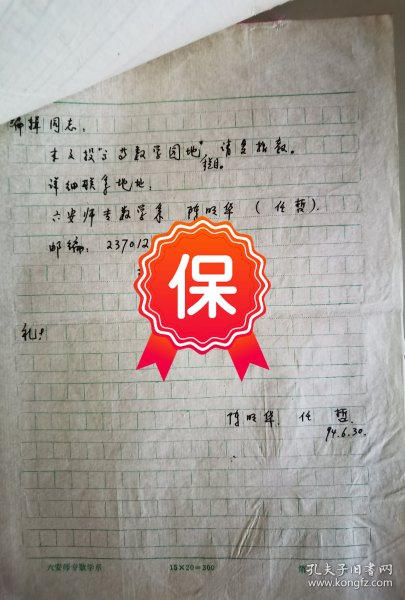 编辑同志:
本文投“高等数学园地”栏目。请多指教。
详细联系地址:
六安师专数学系 陈明华 (任哲).
邮编: 237012
保
礼!
陈明华. 任哲.
94.6.30.
六安师专数学系 15×20=300
孔夫子旧书网
www.kongfz.com